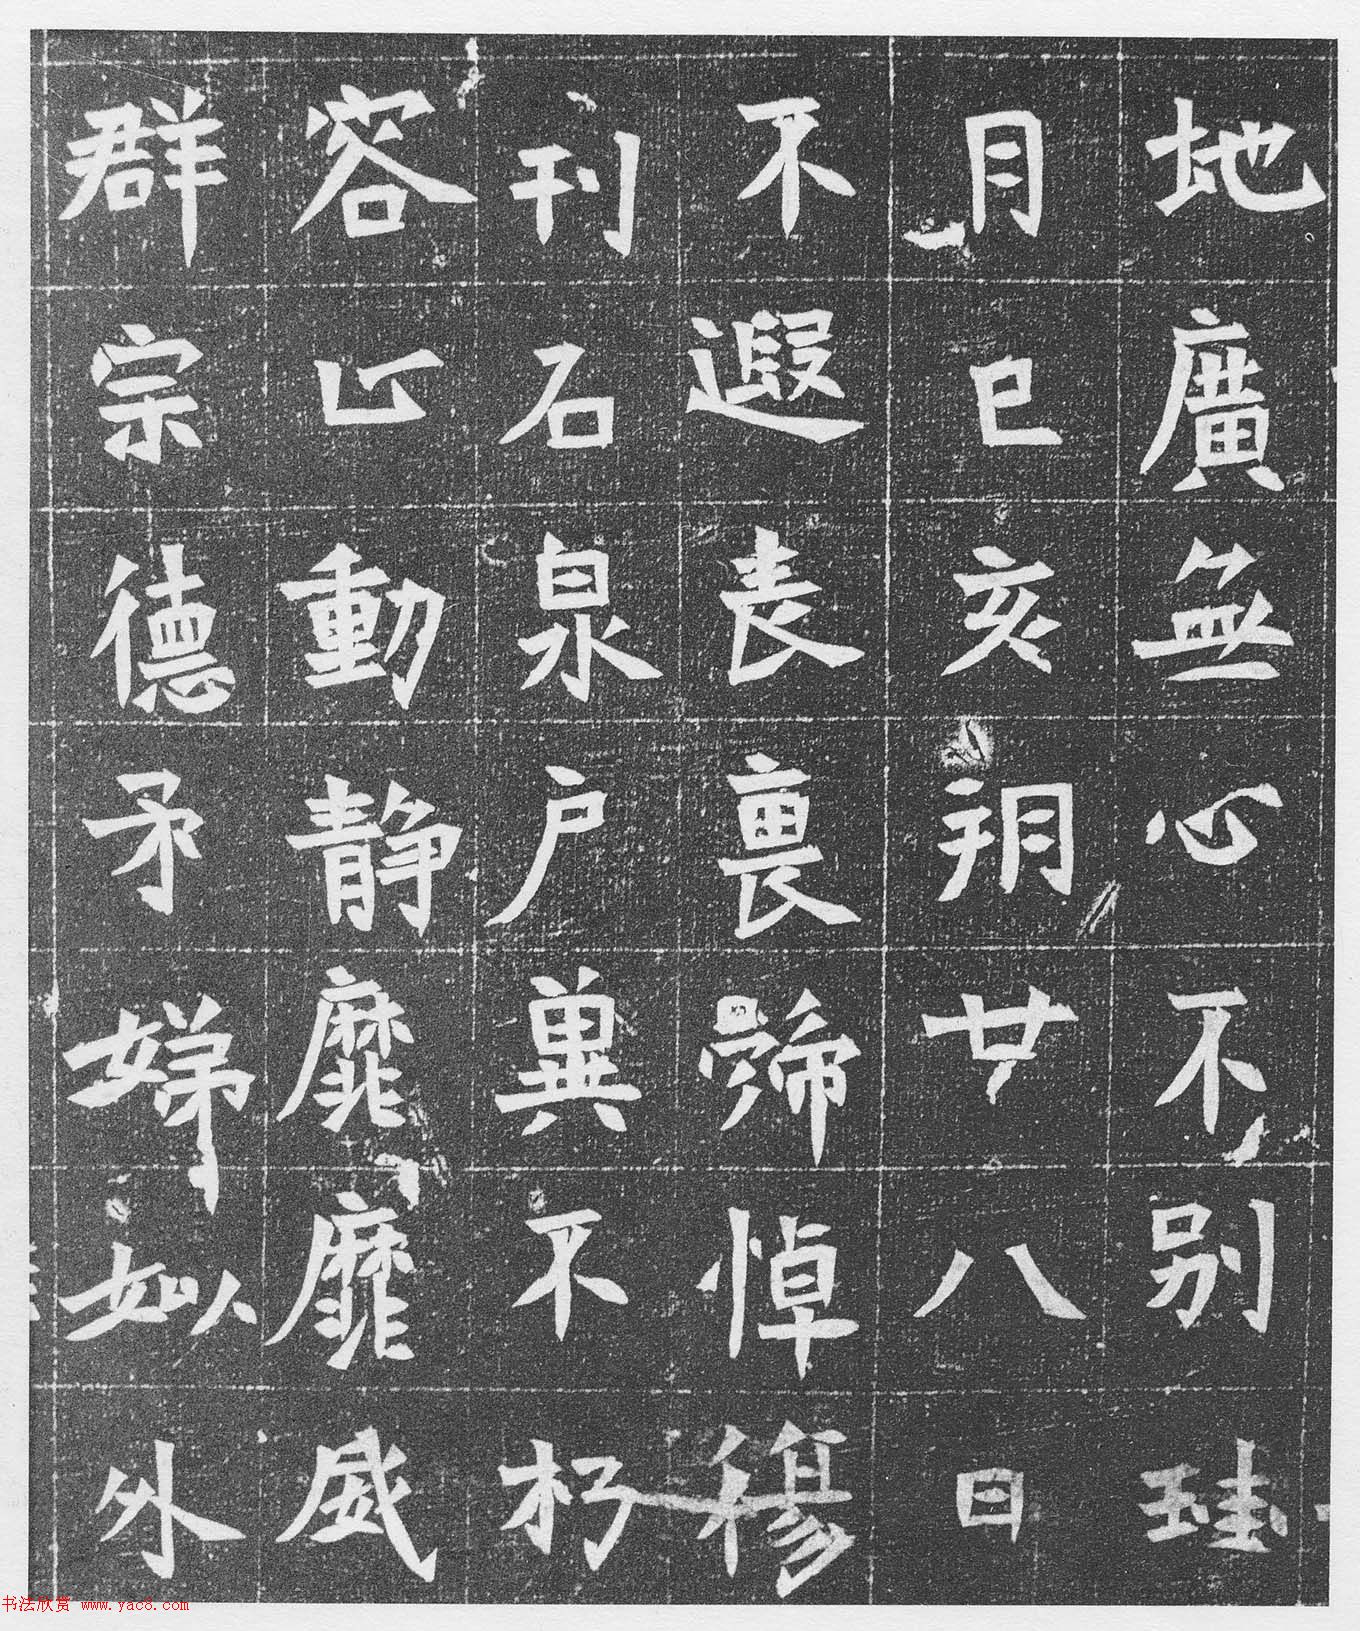 地廣無心不別珪
月己亥朔廿八日
不遐表裏歸悼穆
刊石泉户冀不朽
容止動靜靡靡盛
群宗德矛娣姒外
书法欣赏 www.yac8.com